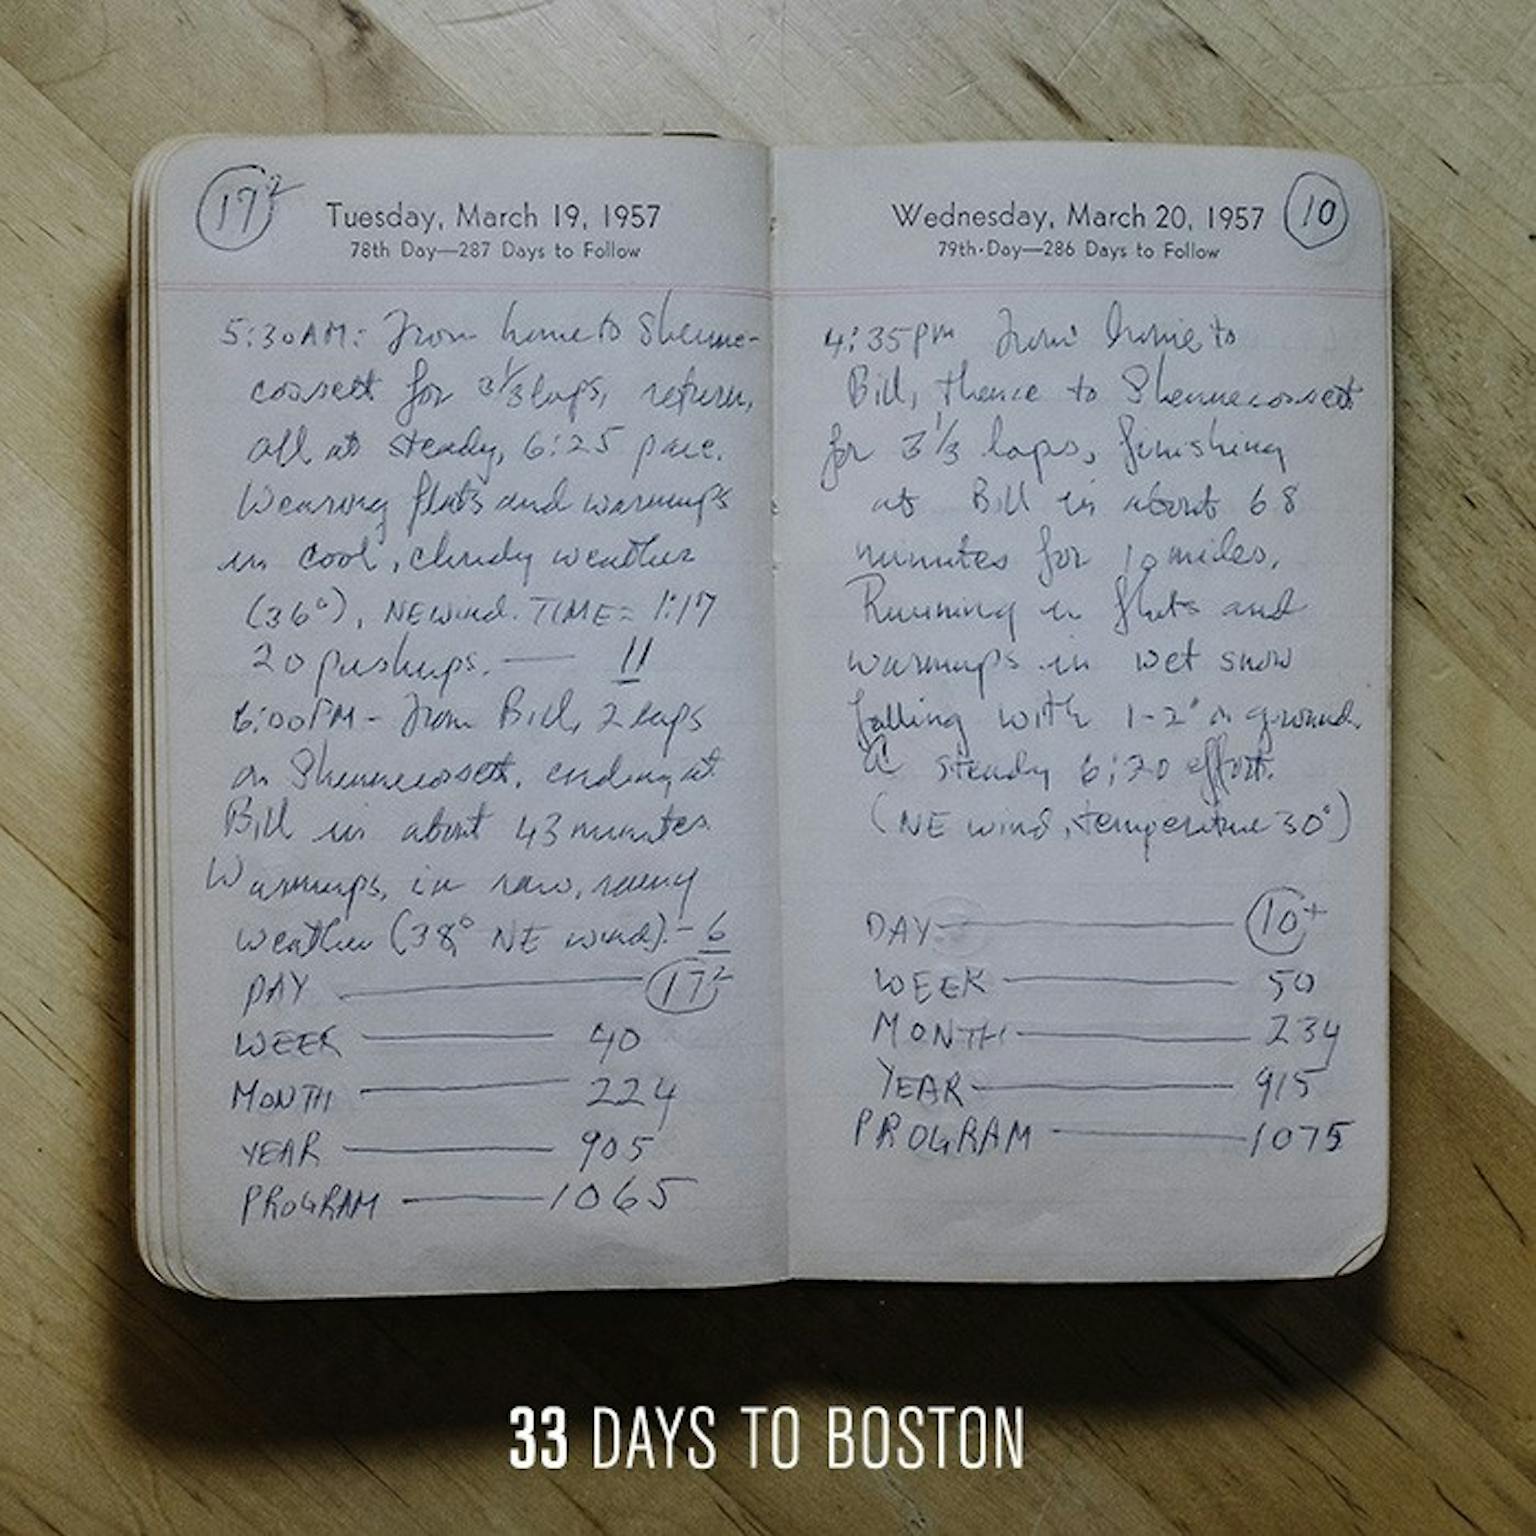 17²
Tuesday, March 19, 1957
78th Day—287 Days to Follow
5:30AM: From home to Shenne-
cossett for 3 1/3 laps, return,
all at steady, 6:25 pace.
Wearing flats and warmups
in cool, cloudy weather
(36°), NE wind. TIME= 1:17
20 pushups. — 11
6:00PM - From Bill, 2 laps
on Shennecossett, ending at
Bill in about 43 minutes.
Warmups, in raw, rainy
weather (38° NE wind). - 6
DAY — 17²
WEEK — 40
MONTH — 224
YEAR — 905
PROGRAM — 1065
Wednesday, March 20, 1957
10
79th Day—286 Days to Follow
4:35PM From home to
Bill, thence to Shennecossett
for 3 1/3 laps, finishing
at Bill in about 68
minutes for 10 miles.
Running in flats and
warmups in wet snow
falling with 1-2" on ground.
A steady 6:30 effort.
(NE wind, temperature 30°)
DAY — 10+
WEEK — 50
MONTH — 234
YEAR — 915
PROGRAM — 1075
33 DAYS TO BOSTON